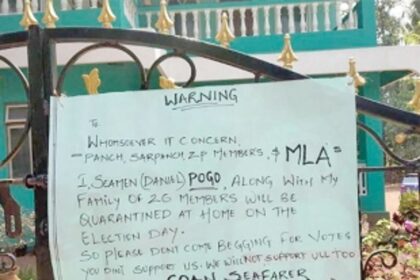 WARNING
TO
WHOMSOEVER IT CONCERN.
- PANCH, SARPANCH, Z.P MEMBERS, $ MLA=S
I, SEAMEN (DANIEL) POGO, ALONG WITH MY
FAMILY OF 26 MEMBERS WILL BE
QUARANTINED AT HOME ON THE
ELECTION DAY.
SO PLEASE DONT COME BEGGING FOR VOTES
YOU DINT SUPPORT US. WE WILL NOT SUPPORT TOO
GOAN SEAFARER